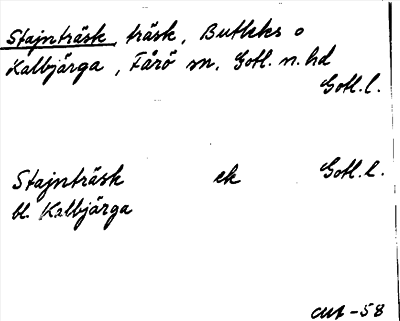 Stajnträsk, träsk, Butleks o
Kalbjärga, Fårö sn, Gotl. n. hd
Gotl. l.
Stajnträsk ek Gotl. l.
bl. Kalbjärga
-58